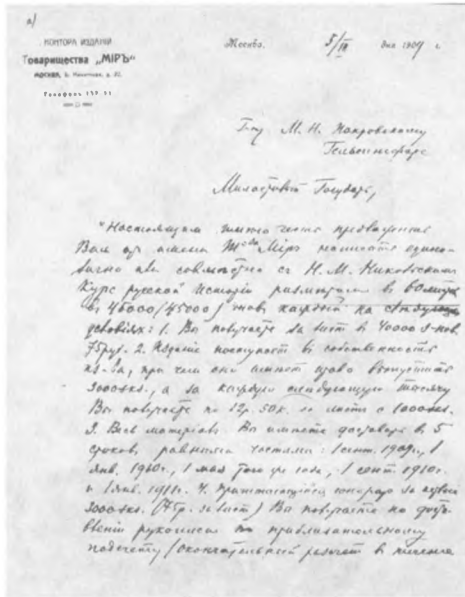 а)
КОНТОРА ИЗДАНІЙ
Товарищества „МІРЪ"
МОСКВА, Б. Никитская, д. 22.
Телефонъ
Москва. 5/III дня 1909 г.
Г-ну М. Н. Покровскому
Гельсингфорс
Милостивый Государь,
Настоящим имею честь предложить
Вам от имени Т-ва Мір написать едино-
лично или совместно с Н. М. Никольским
Курс русской истории размером в 60 лист.
в 45000 /45000/ знов каждый на следующ.
условиях: 1. Вы получаете за лист в 40000 з-ков
75 руб. 2. Издание поступает в собственность
из-ва, при чем оно имеет право выпустить
3000 экз., а за каждую следующую тысячу
Вы получаете по 12р. 50к. за листа с 1000 экз.
3. Весь материал Вы имеете доставить в 5
сроков равными частями: 1 сент. 1909г., 1
янв. 1910г., 1 мая того же года, 1 сент. 1910г.
и 1 янв. 1911г. 4. Причитающийся гонорар за первые
3000 экз. (75р. за лист) Вы получаете по доста-
влении рукописи по приблизительному
подсчету /окончательный расчет в течение